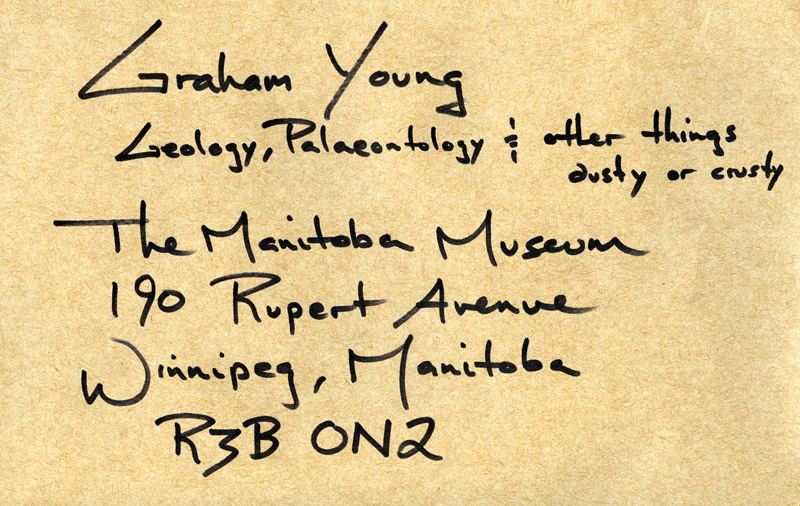 Graham Young
Geology, Palaeontology & other things
dusty or crusty
The Manitoba Museum
190 Rupert Avenue
Winnipeg, Manitoba
R3B 0N2